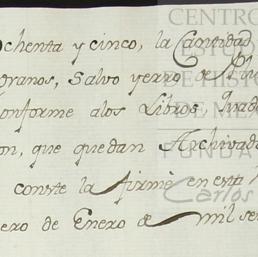 ochenta y cinco, la Cantidad
granos, Salvo yerro de
onforme alos Libros,
on, que quedan Archivad
conste la firmè en esta
ero de Enero de mil se
CENTRO
ESTU
DE HISTO
DE MEX
FUNDA
Carlos